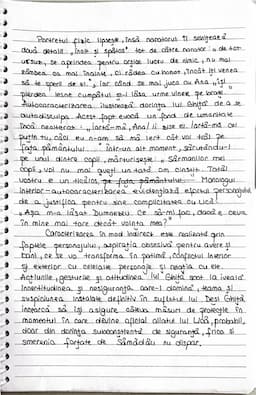 Portretul fizic lipsește, însă naratorul îi sesizează
două detalii „înalt și spătos" tot de către narator: „de tot
ursuz, se aprindea pentru orișice lucru de nimic, nu mai
zâmbea ca mai înainte, ci râdea cu hohot, încât îți venea
să te sperii de el", iar când se mai juca cu Ana „își
pierdea lesne cumpătul și-i lăsa urme vinete pe brațe".
Autocaracterizarea ilustrează dorința lui Ghiță de a se
autodisculpa. Acest fapt evocă un fond de umanitate
încă nealterat: „Iartă-mă, Ano! îi zise el. Iartă-mă cel
puțin tu, căci eu n-am să mă iert cât voi trăi pe
fața pământului." Într-un alt moment, sărutându-i
pe unul dintre copii, mărturisește: „Sărmanilor mei
copii, voi nu mai aveți un tată om cinstit. Tatăl
vostru e un ticălos, pe fața pământului." Monologul
interior - autocaracterizarea evidențiază efortul personajului
de a justifica pentru sine complicitatea cu Lică:
„Așa m-a lăsat Dumnezeu. Ce să-mi fac, dacă e ceva
în mine mai tare decât voința mea?"
Caracterizarea în mod indirect este realizată prin
faptele personajului, aspirația obsesivă pentru avere și
bani, ce se va transforma în patimă, conflictul interior
și exterior cu celelalte personaje și relația cu ele.
Acțiunile, gesturile și atitudinea lui Ghiță scot la iveală
incertitudinea și nesiguranța care-l domină, teama și
suspiciunea instalate definitiv în sufletul lui. Deși Ghiță
încearcă să își asigure câteva măsuri de protecție în
momentul în care devine oficial aliatul lui Lică, probabil,
doar din dorința subconștientă de siguranță, frica și
smerenia forțate de Sămădău nu dispar.